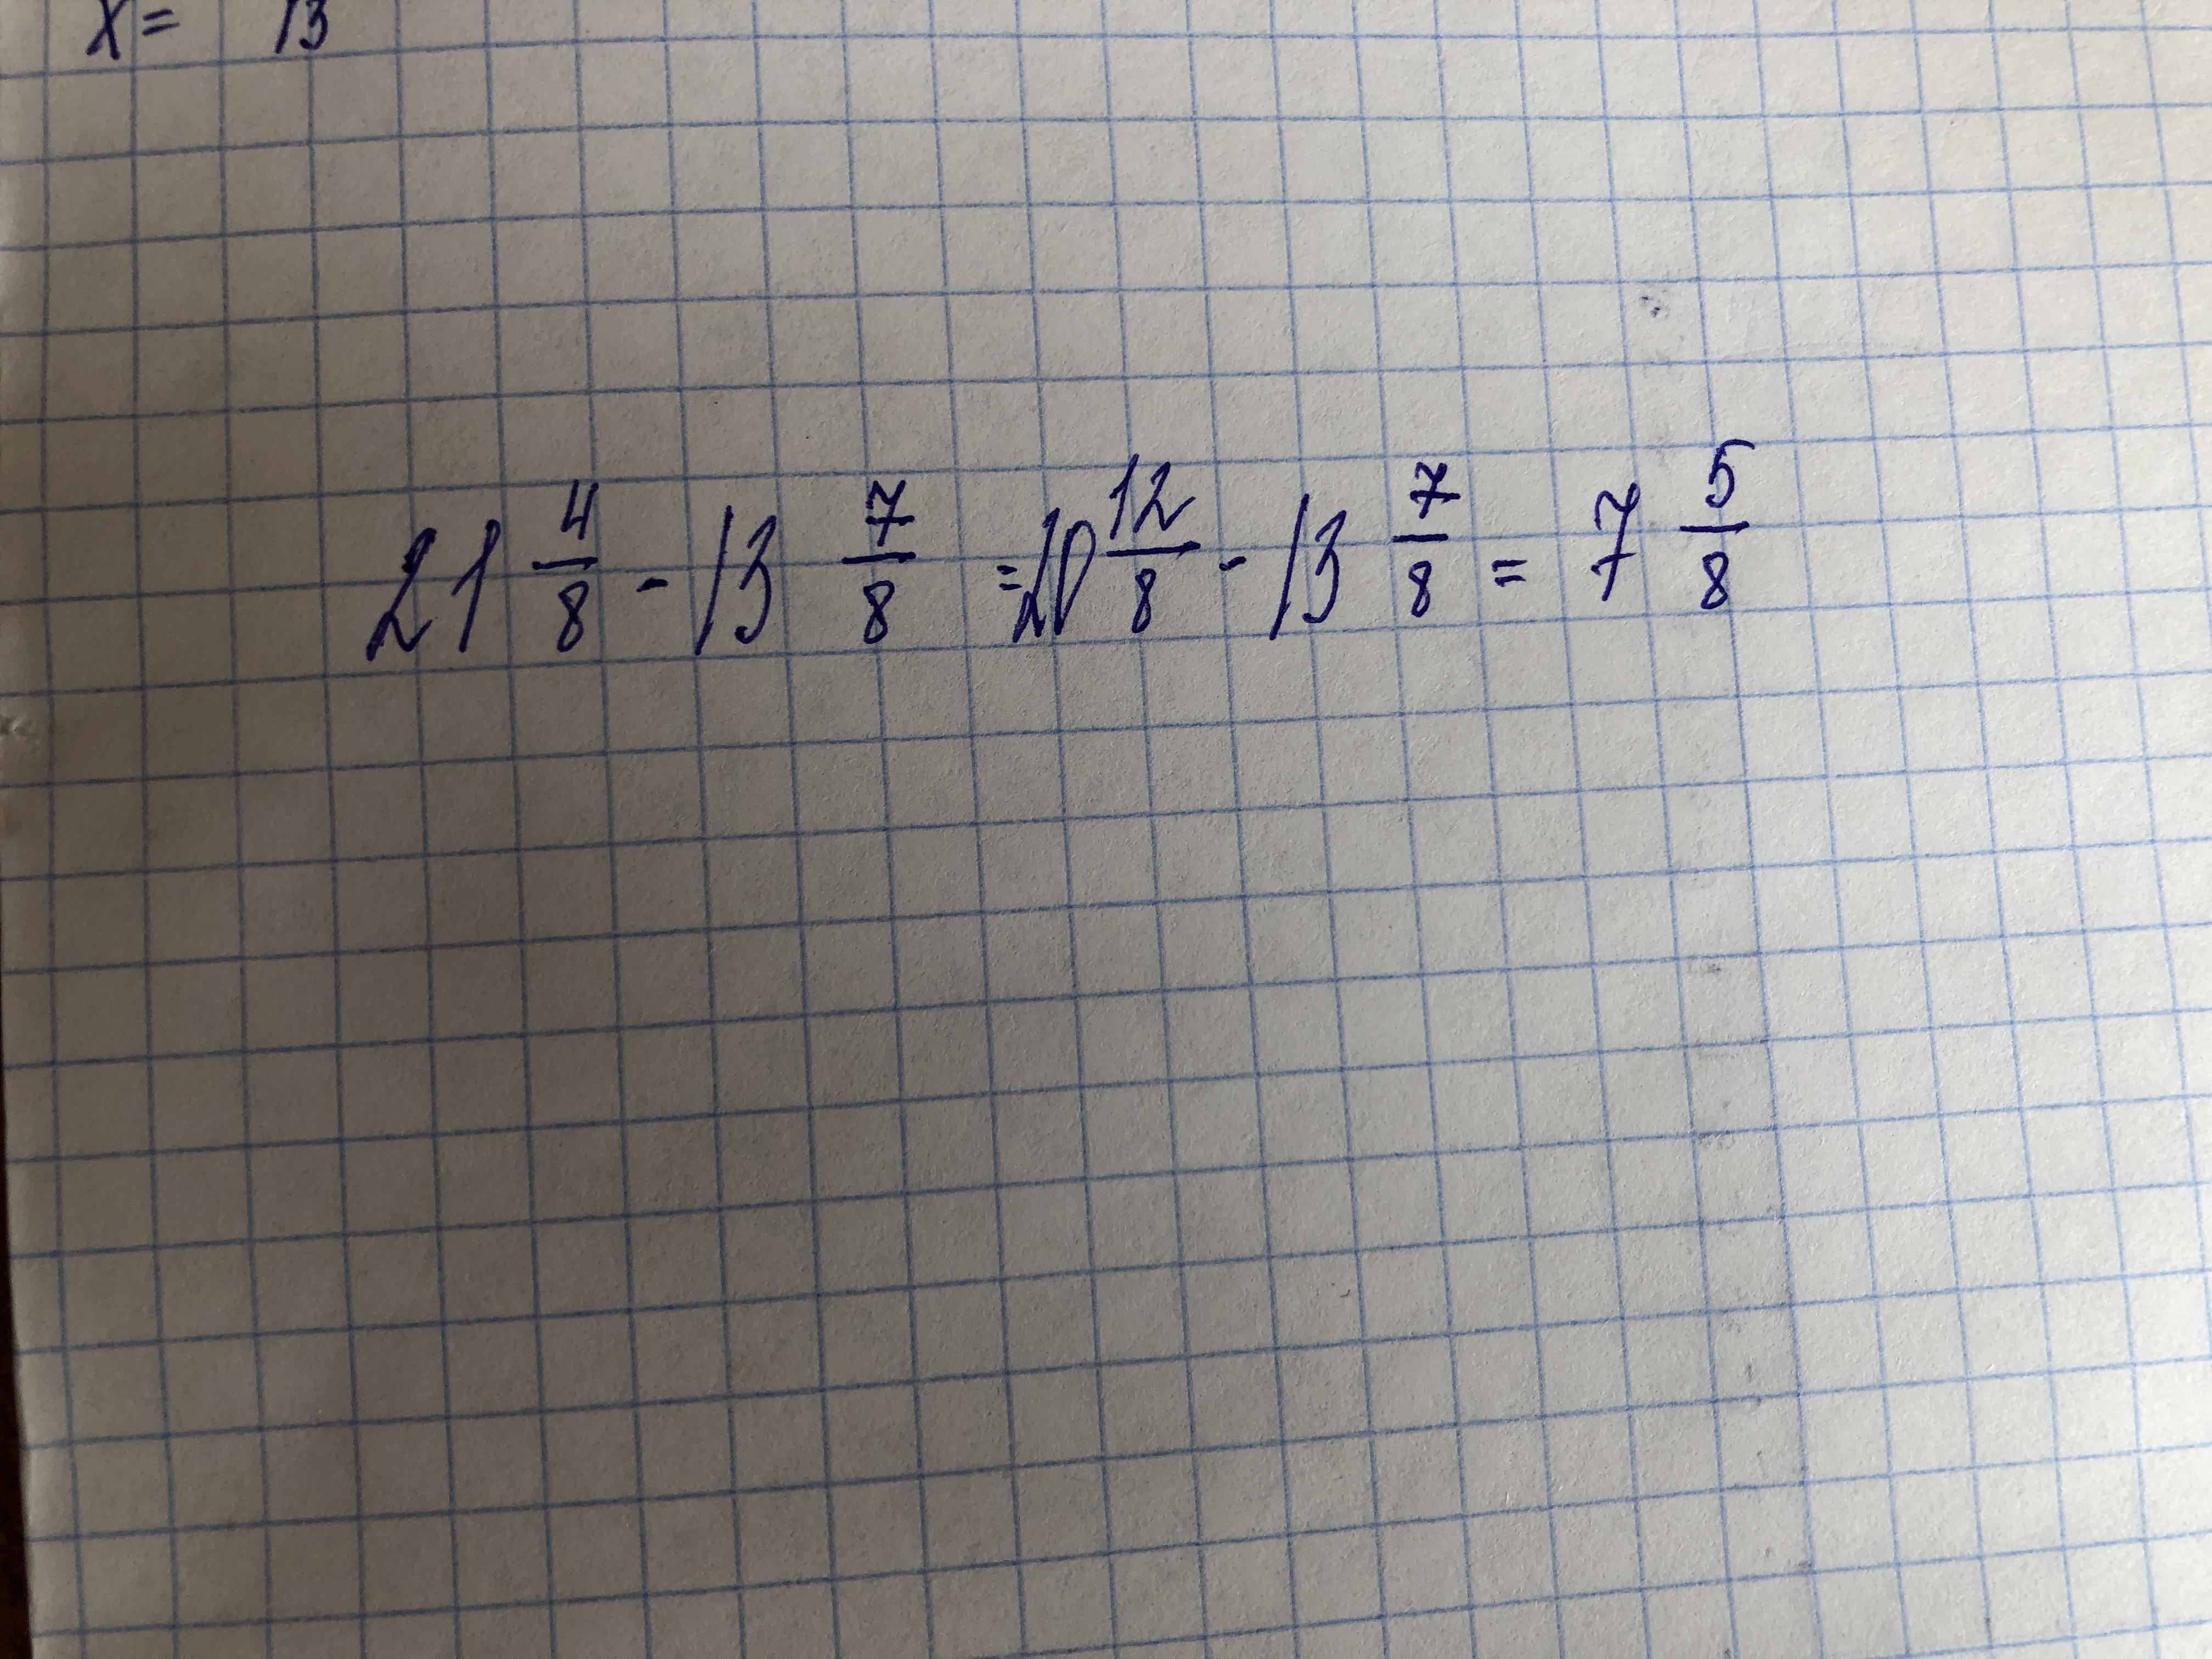 x = 13
21 4/8 - 13 7/8 = 20 12/8 - 13 7/8 = 7 5/8